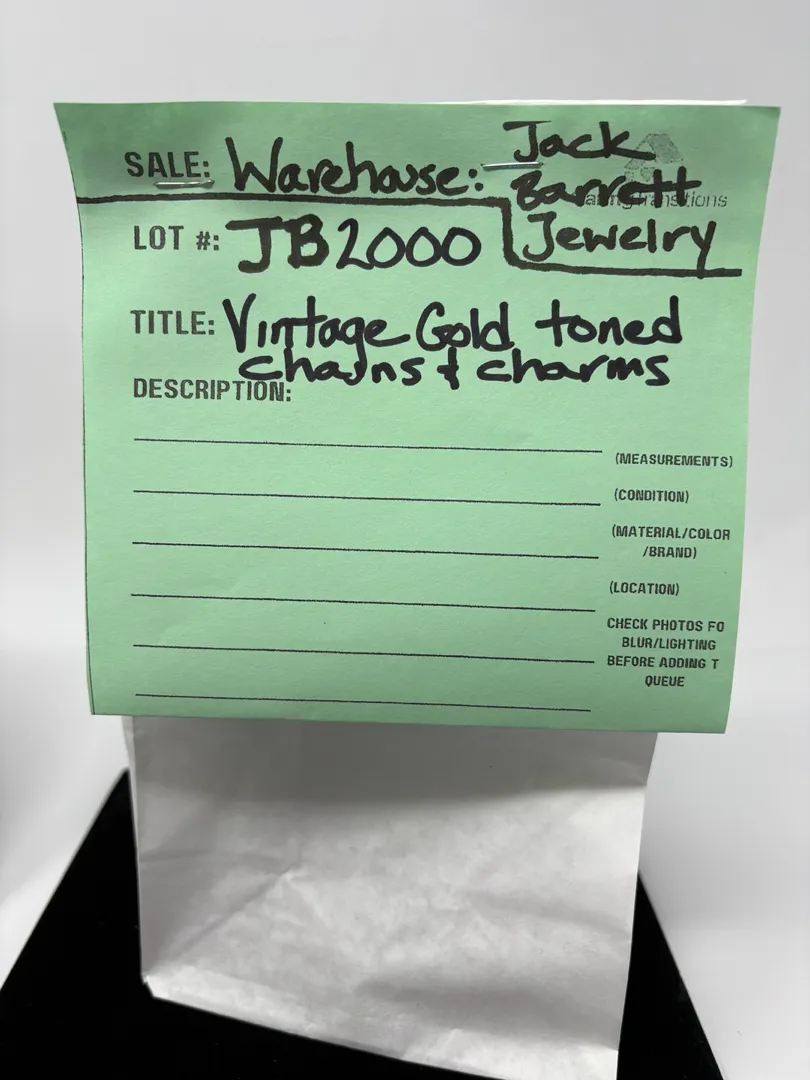 SALE: Warehouse: Jack
Barrett
Jewelry
LOT #: JB2000
TITLE: Vintage Gold toned
chains & charms
DESCRIPTION:
(MEASUREMENTS)
(CONDITION)
(MATERIAL/COLOR
/BRAND)
(LOCATION)
CHECK PHOTOS FO
BLUR/LIGHTING
BEFORE ADDING T
QUEUE